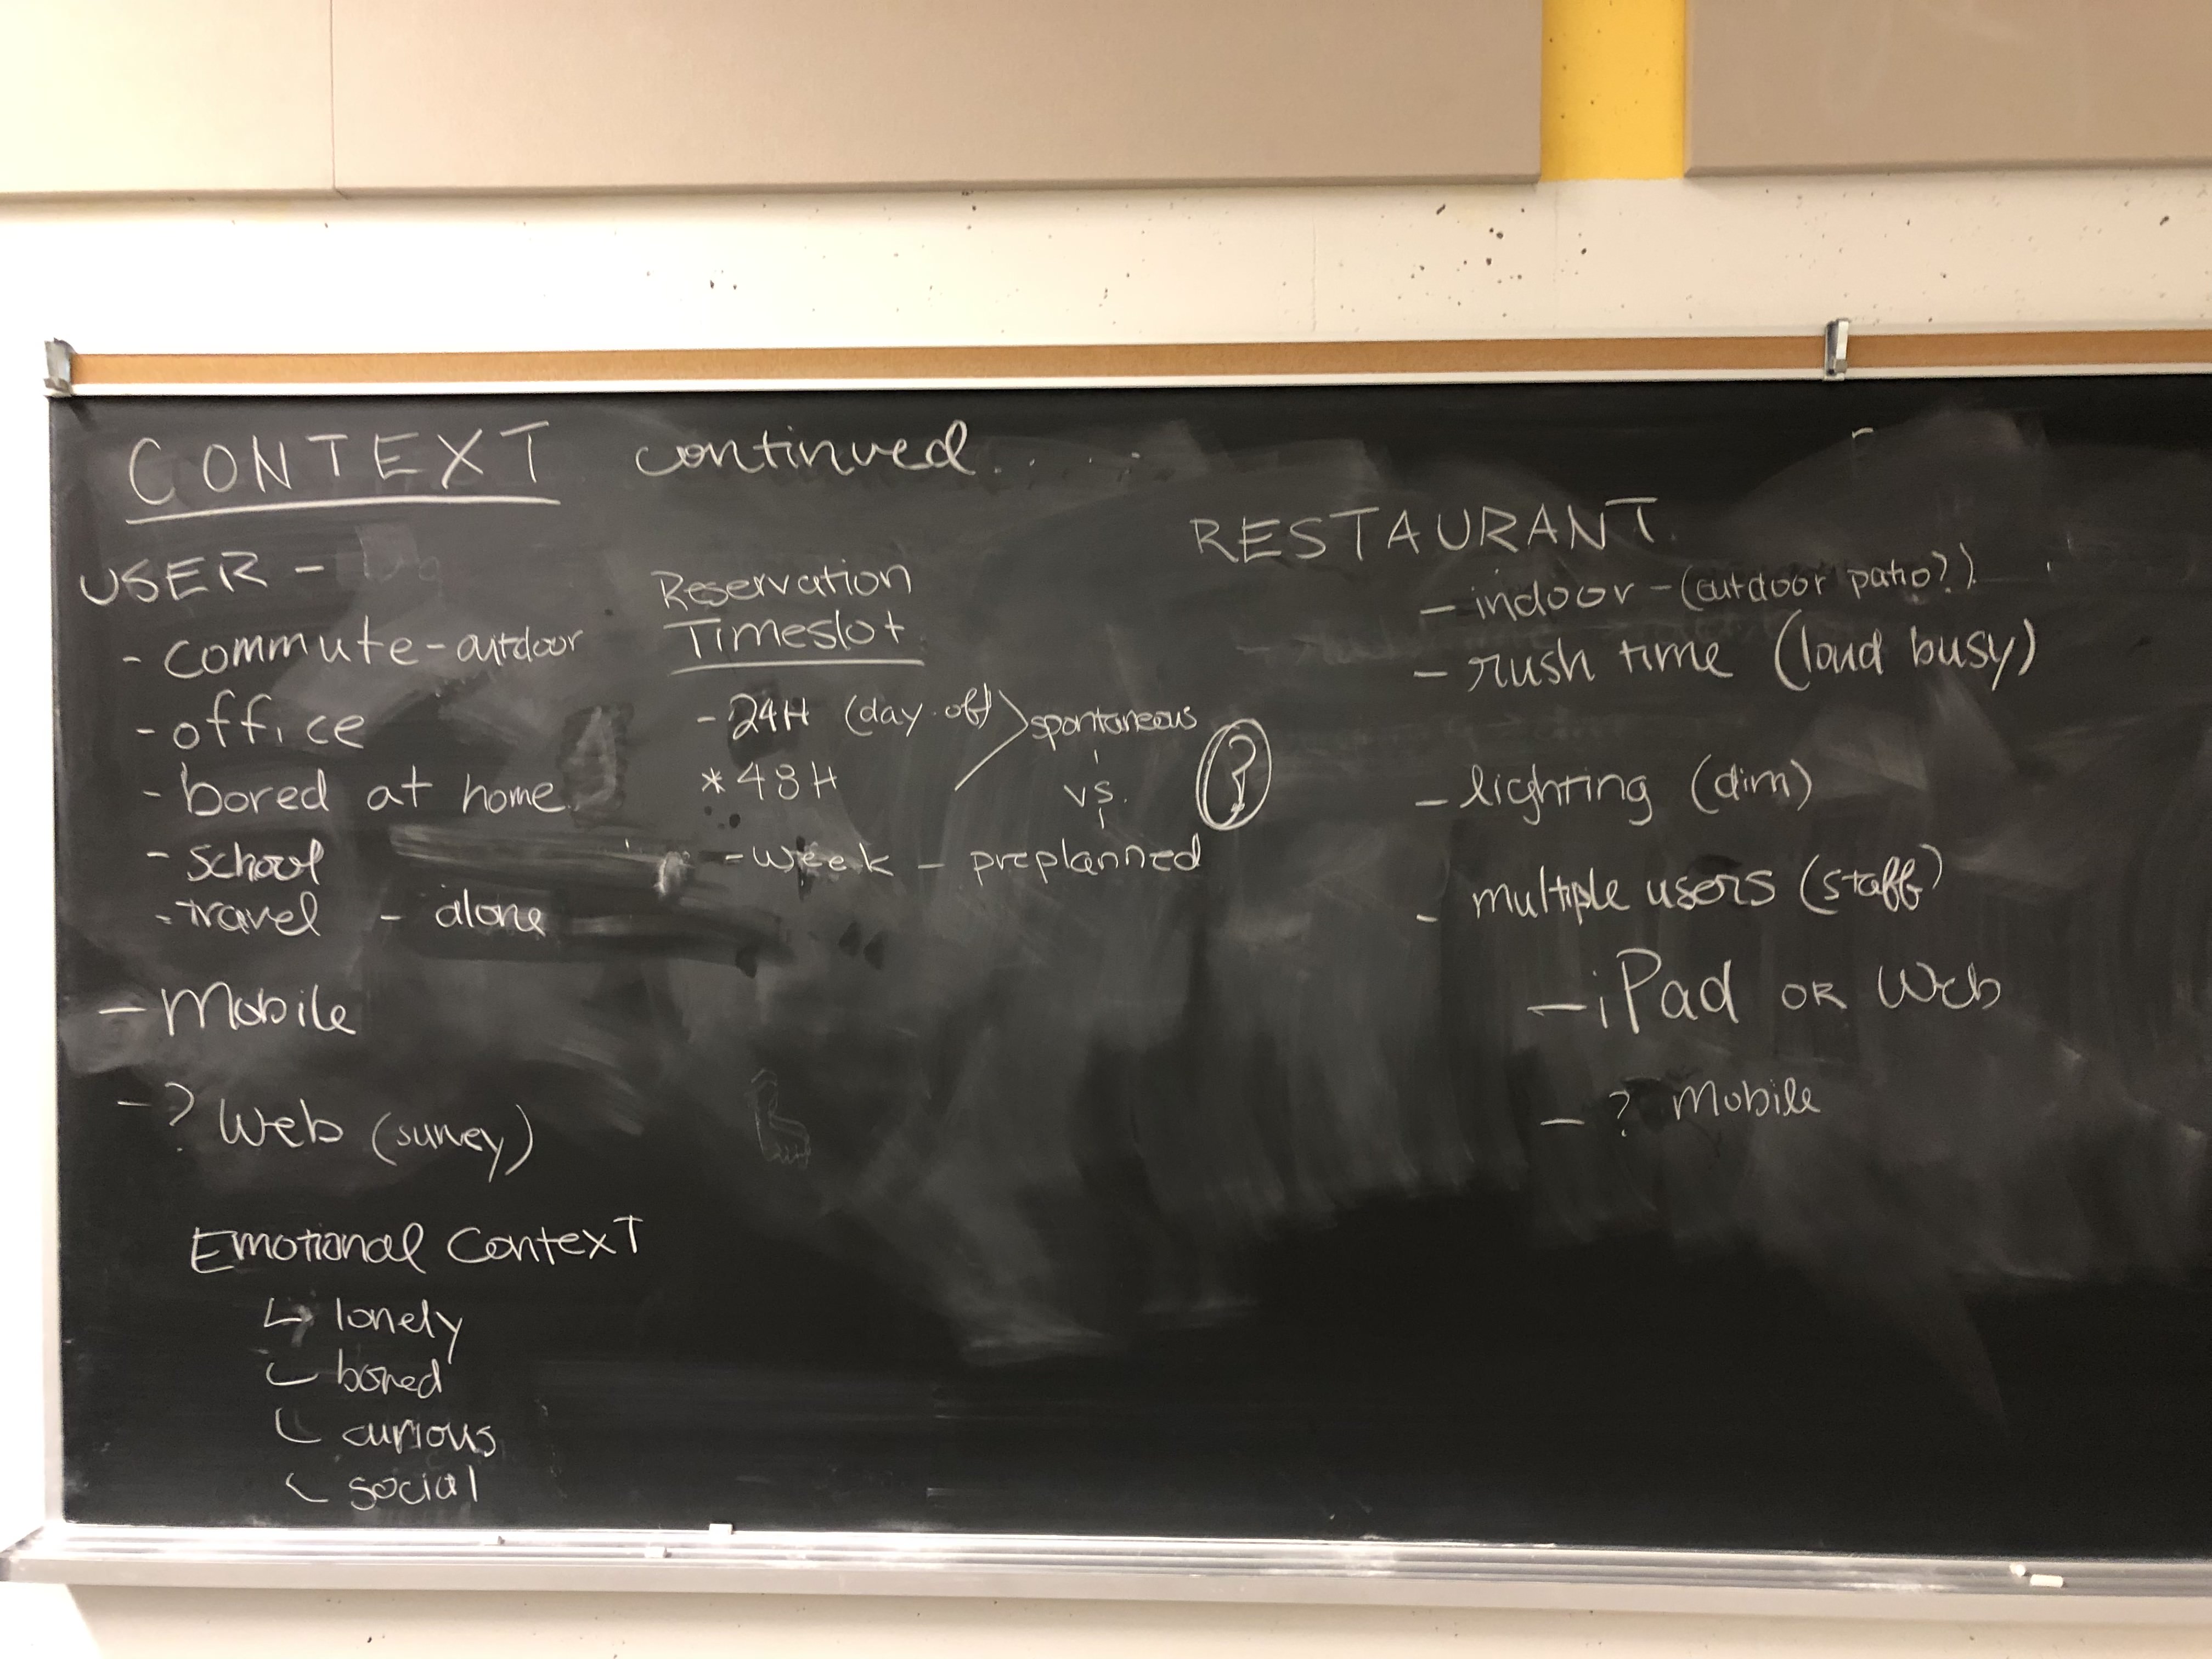 CONTEXT continued.....
USER -
- commute - outdoor
- office
- bored at home
- school
- travel - alone
- Mobile
- ? Web (survey)
Emotional Context
↳ lonely
↳ bored
↳ curious
↳ social
Reservation
Timeslot
- 24H (day of) > spontaneous
* 48H
vs. ?
- week - preplanned
RESTAURANT
- indoor - (outdoor patio?)
- rush time (loud busy)
- lighting (dim)
- multiple users (staff)
- iPad OR Web
- ? Mobile